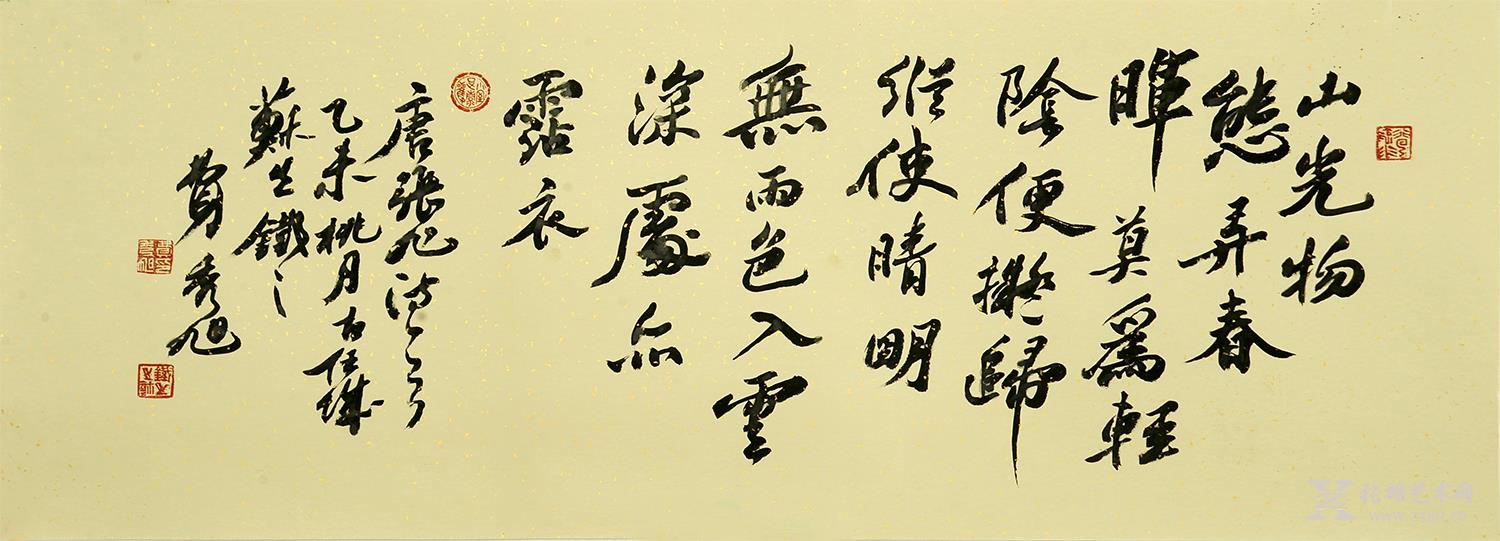 山光物
態弄春
暉莫爲輕
陰便擬歸
縱使晴明
無雨色入雲
深處亦
霑衣
唐張旭詩
乙未桃月古任城
鐵之
秀旭